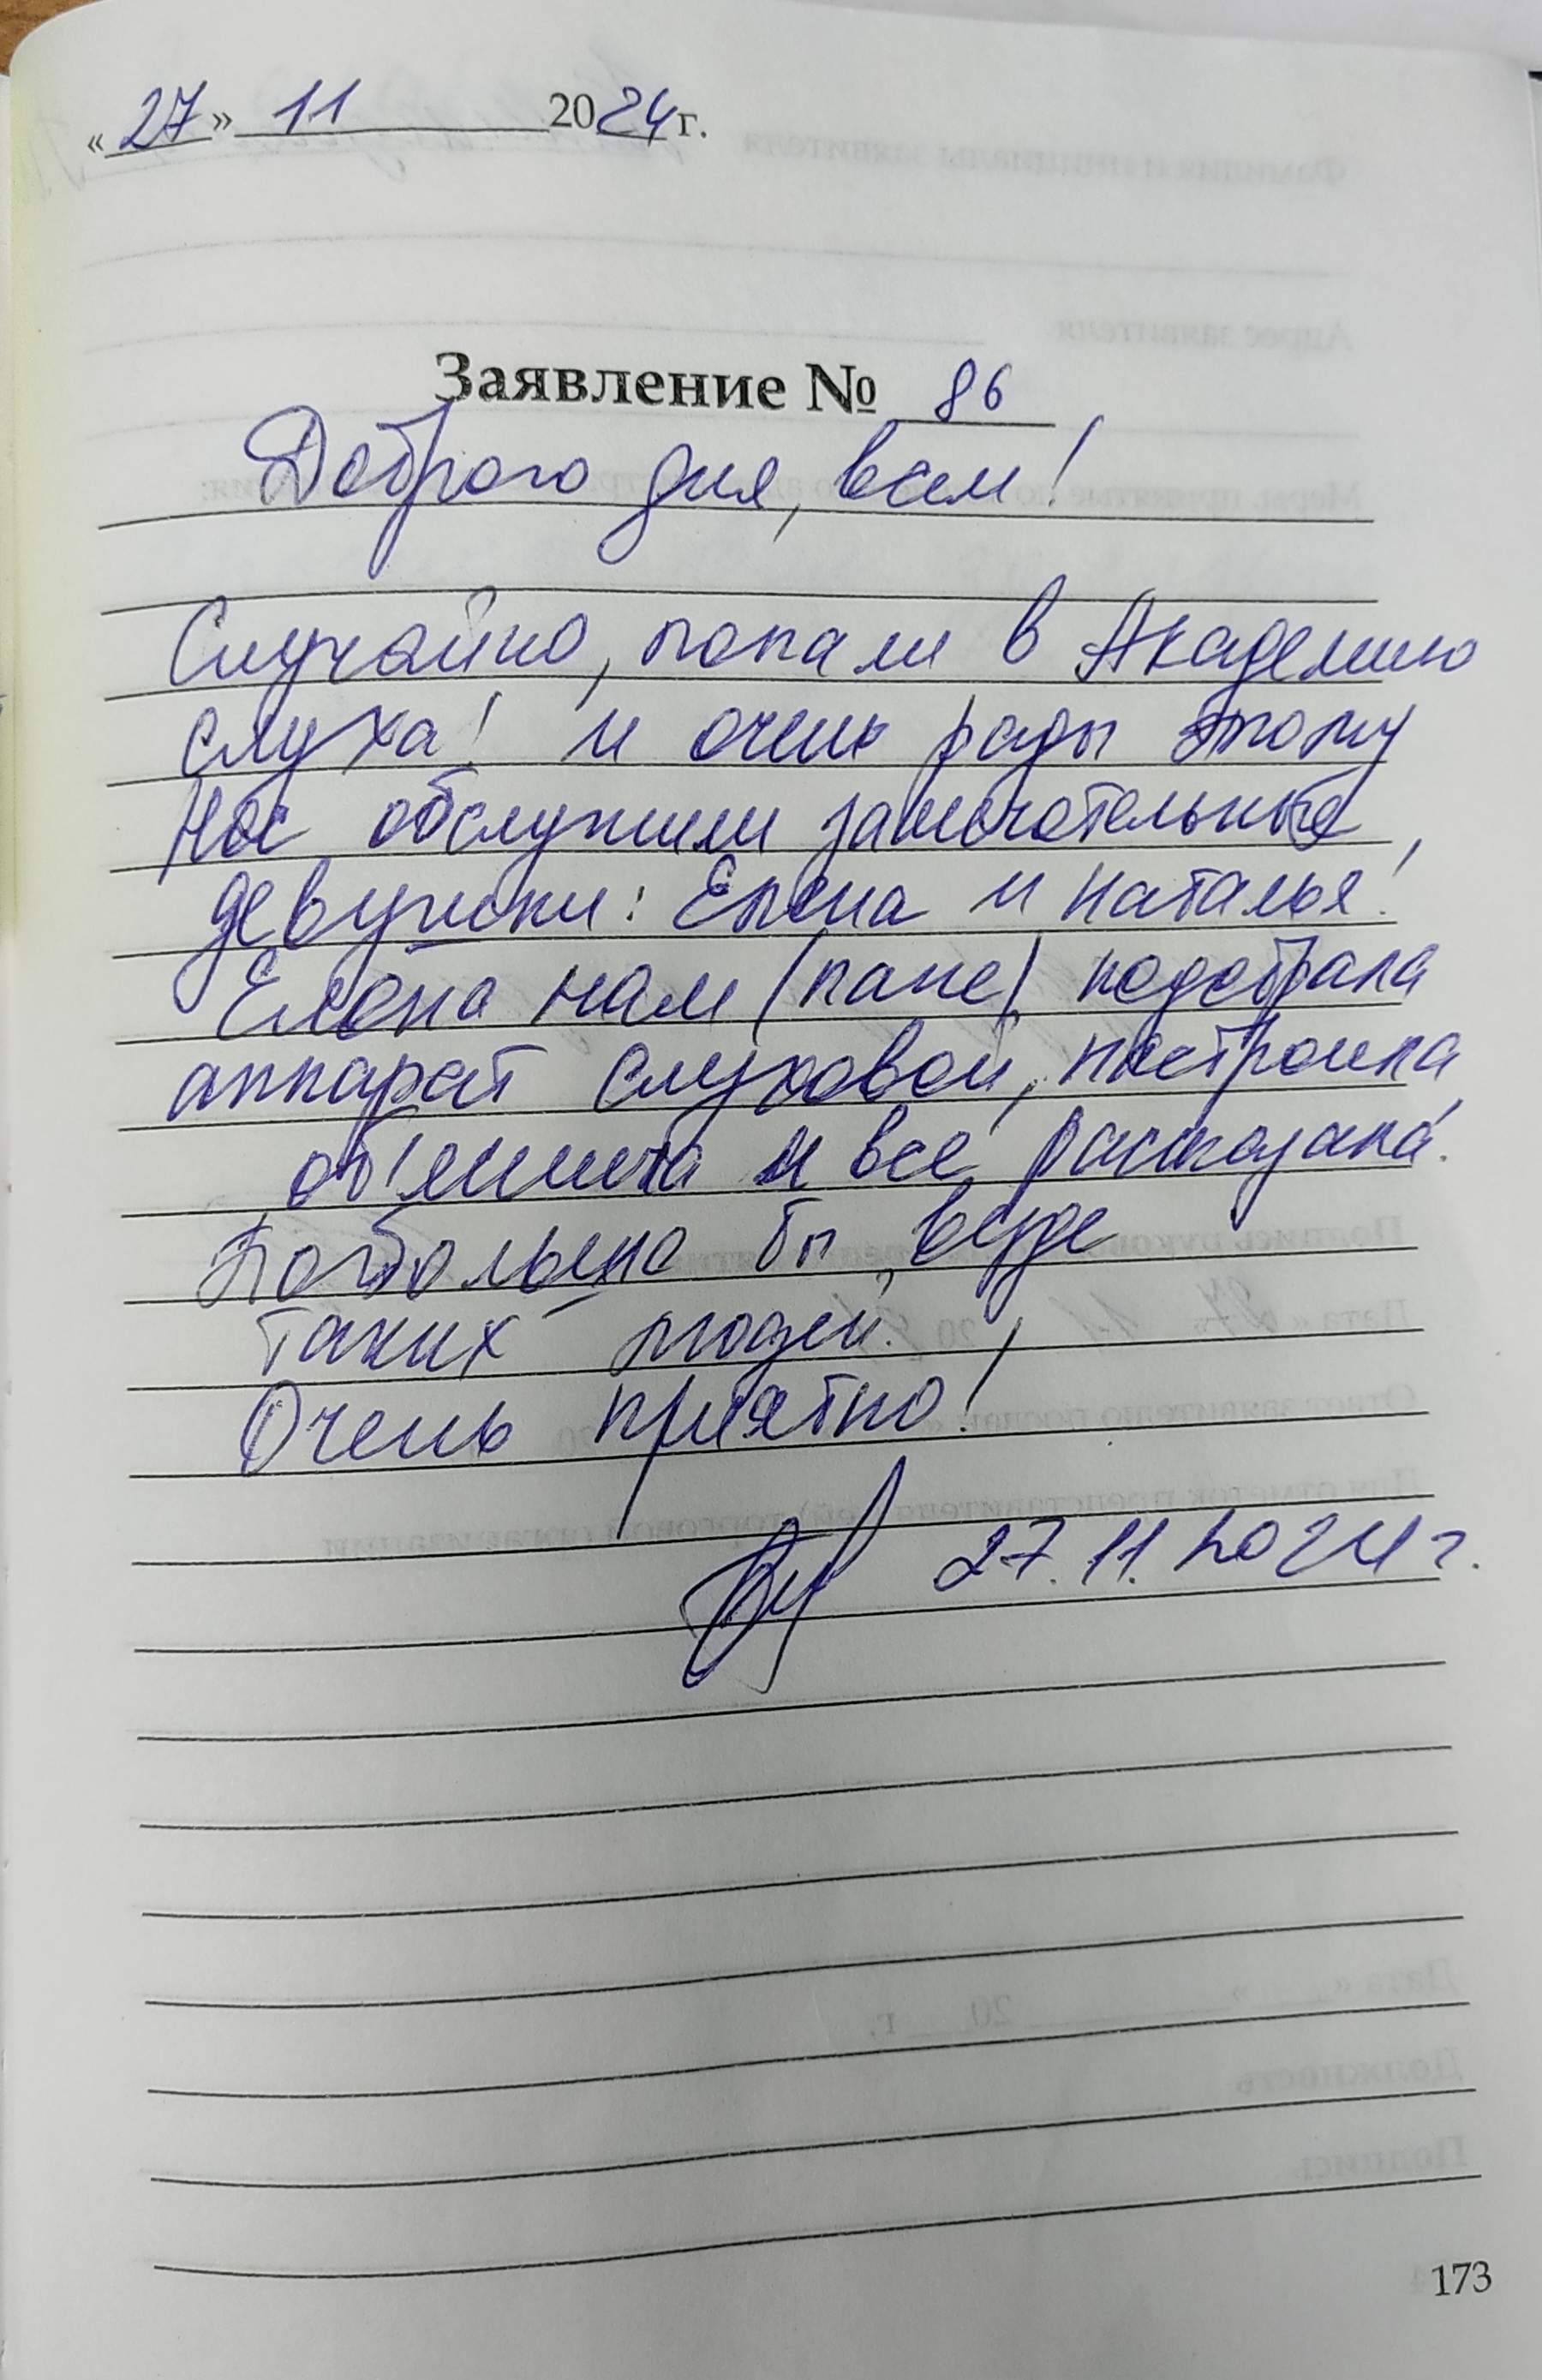 «27» 11 2024 г.
Заявление № 86
Доброго дня, всем!
Случайно, попали в Академию
слуха! и очень рады этому
Нас обслужили замечательные,
девушки: Елена и Наталья!
Елена нам (папе) подобрала
аппарат слуховой, настроила
об'яснила и все, рассказала.
Побольше бы, везде
таких людей.
Очень приятно!
27.11.2024 г.
173